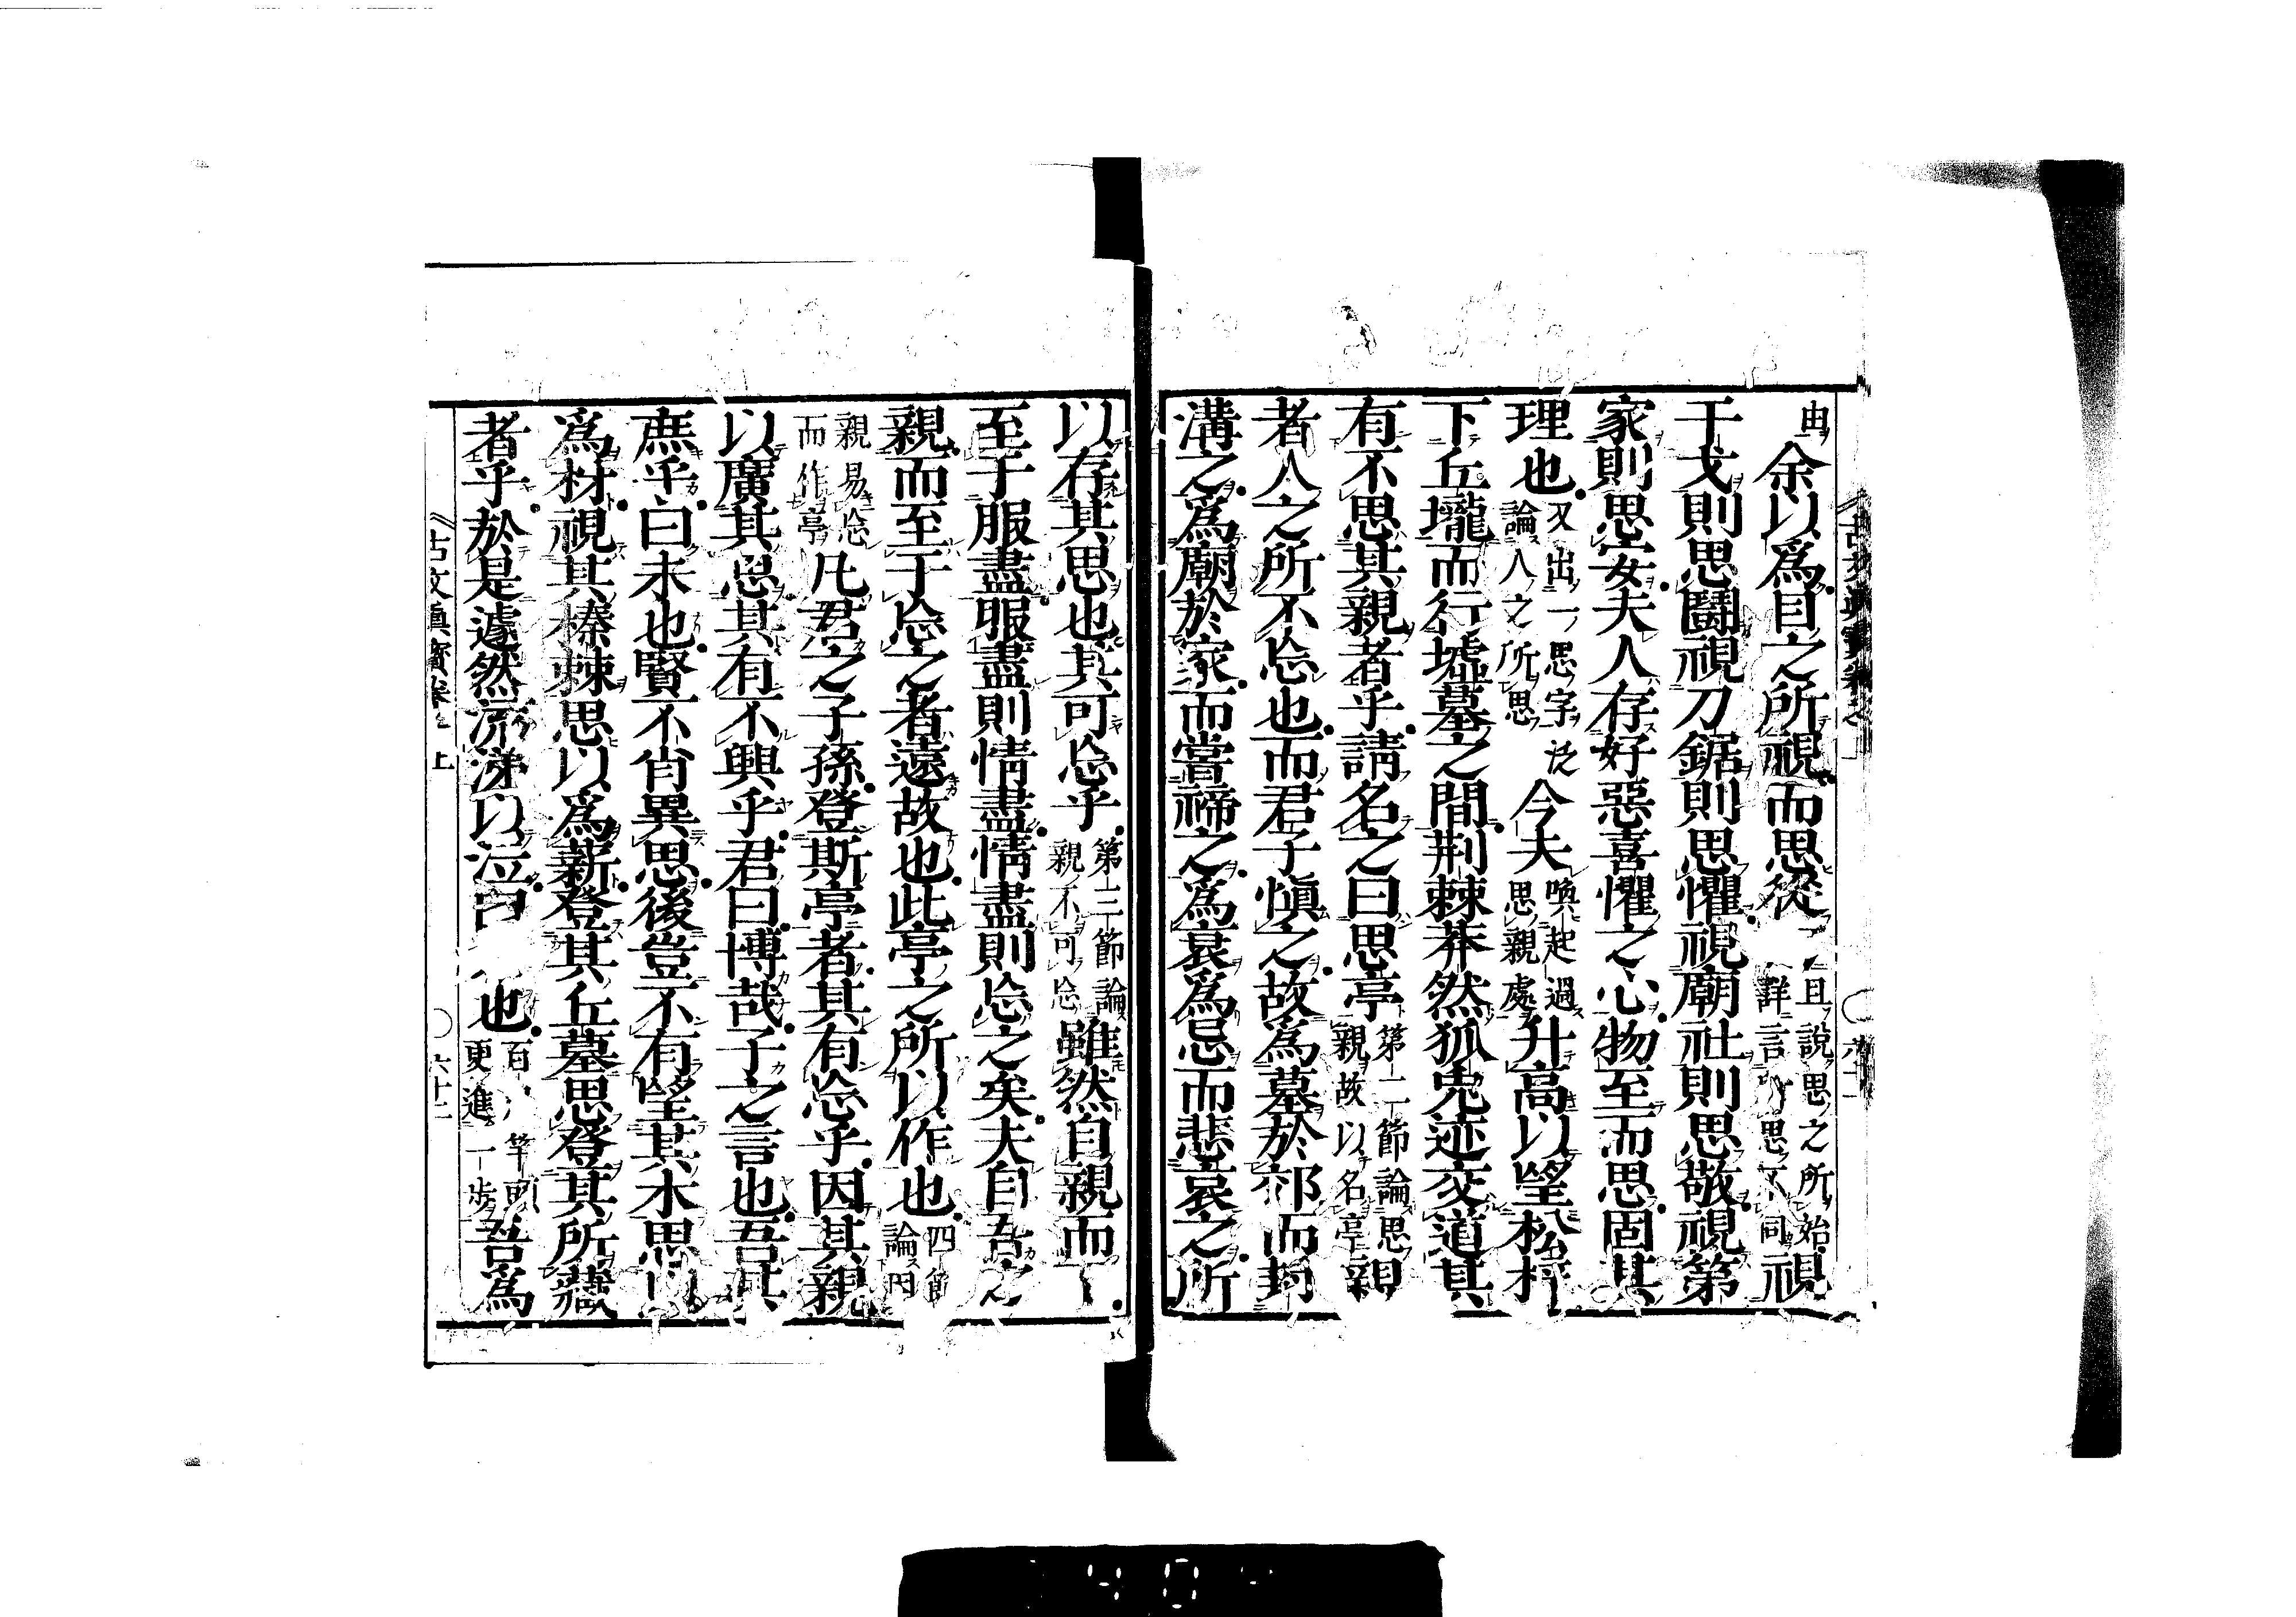 由余以爲目之所視而思從且說思之所始詳言所思不同視
干戈則思鬪視刀鋸則思懼視廟社則思敬視第
家則思安夫人存好惡喜懼之心物至而思固其
理也又出一思字泛論人之所思今夫喚起過思親處升高以望松梓
下丘壠而行墟墓之間荆棘莽然狐兎迹交道其
有不思其親者乎請名之曰思亭第二節論思親故以名亭親
者人之所不忘也而君子愼之故爲墓於郊而封
溝之爲廟於家而嘗禘之爲衰爲忌而悲哀之所
以存其思也其可忘乎第三節論親不可忘雖然自親而
至于服盡服盡則情盡情盡則忘之矣夫自吾之
親而至于忘之者遠故也此亭之所以作也四節論因
親易忘而作亭凡君之子孫登斯亭者其有忘乎因其親
以廣其思其有不興乎君曰博哉子之言也吾其
庶乎曰未也賢不肖異思後豈不有望其木思以
爲材視其榛棘思以爲薪登其丘墓思登其所藏
者乎於是遽然流涕以泣曰也百竿頭更進一步吾爲
古文眞寶卷之上 ○六十二